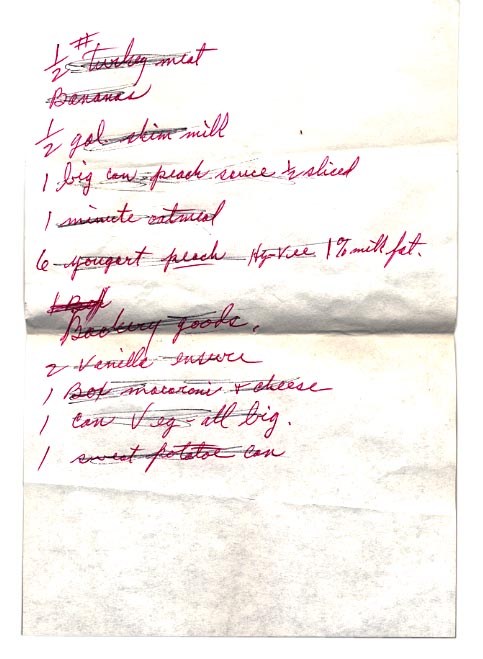 1/2 # turkey meat
Bananas
1/2 gal skim milk
1 big can peach sauce 1/2 sliced
1 minute oatmeal
6 yougart peach Hy-Vee 1% milk fat.
1
Backery goods.
2 Vanilla ensure
1 Box macoroni + cheese
1 can Veg-all big.
1 sweet potatoe can